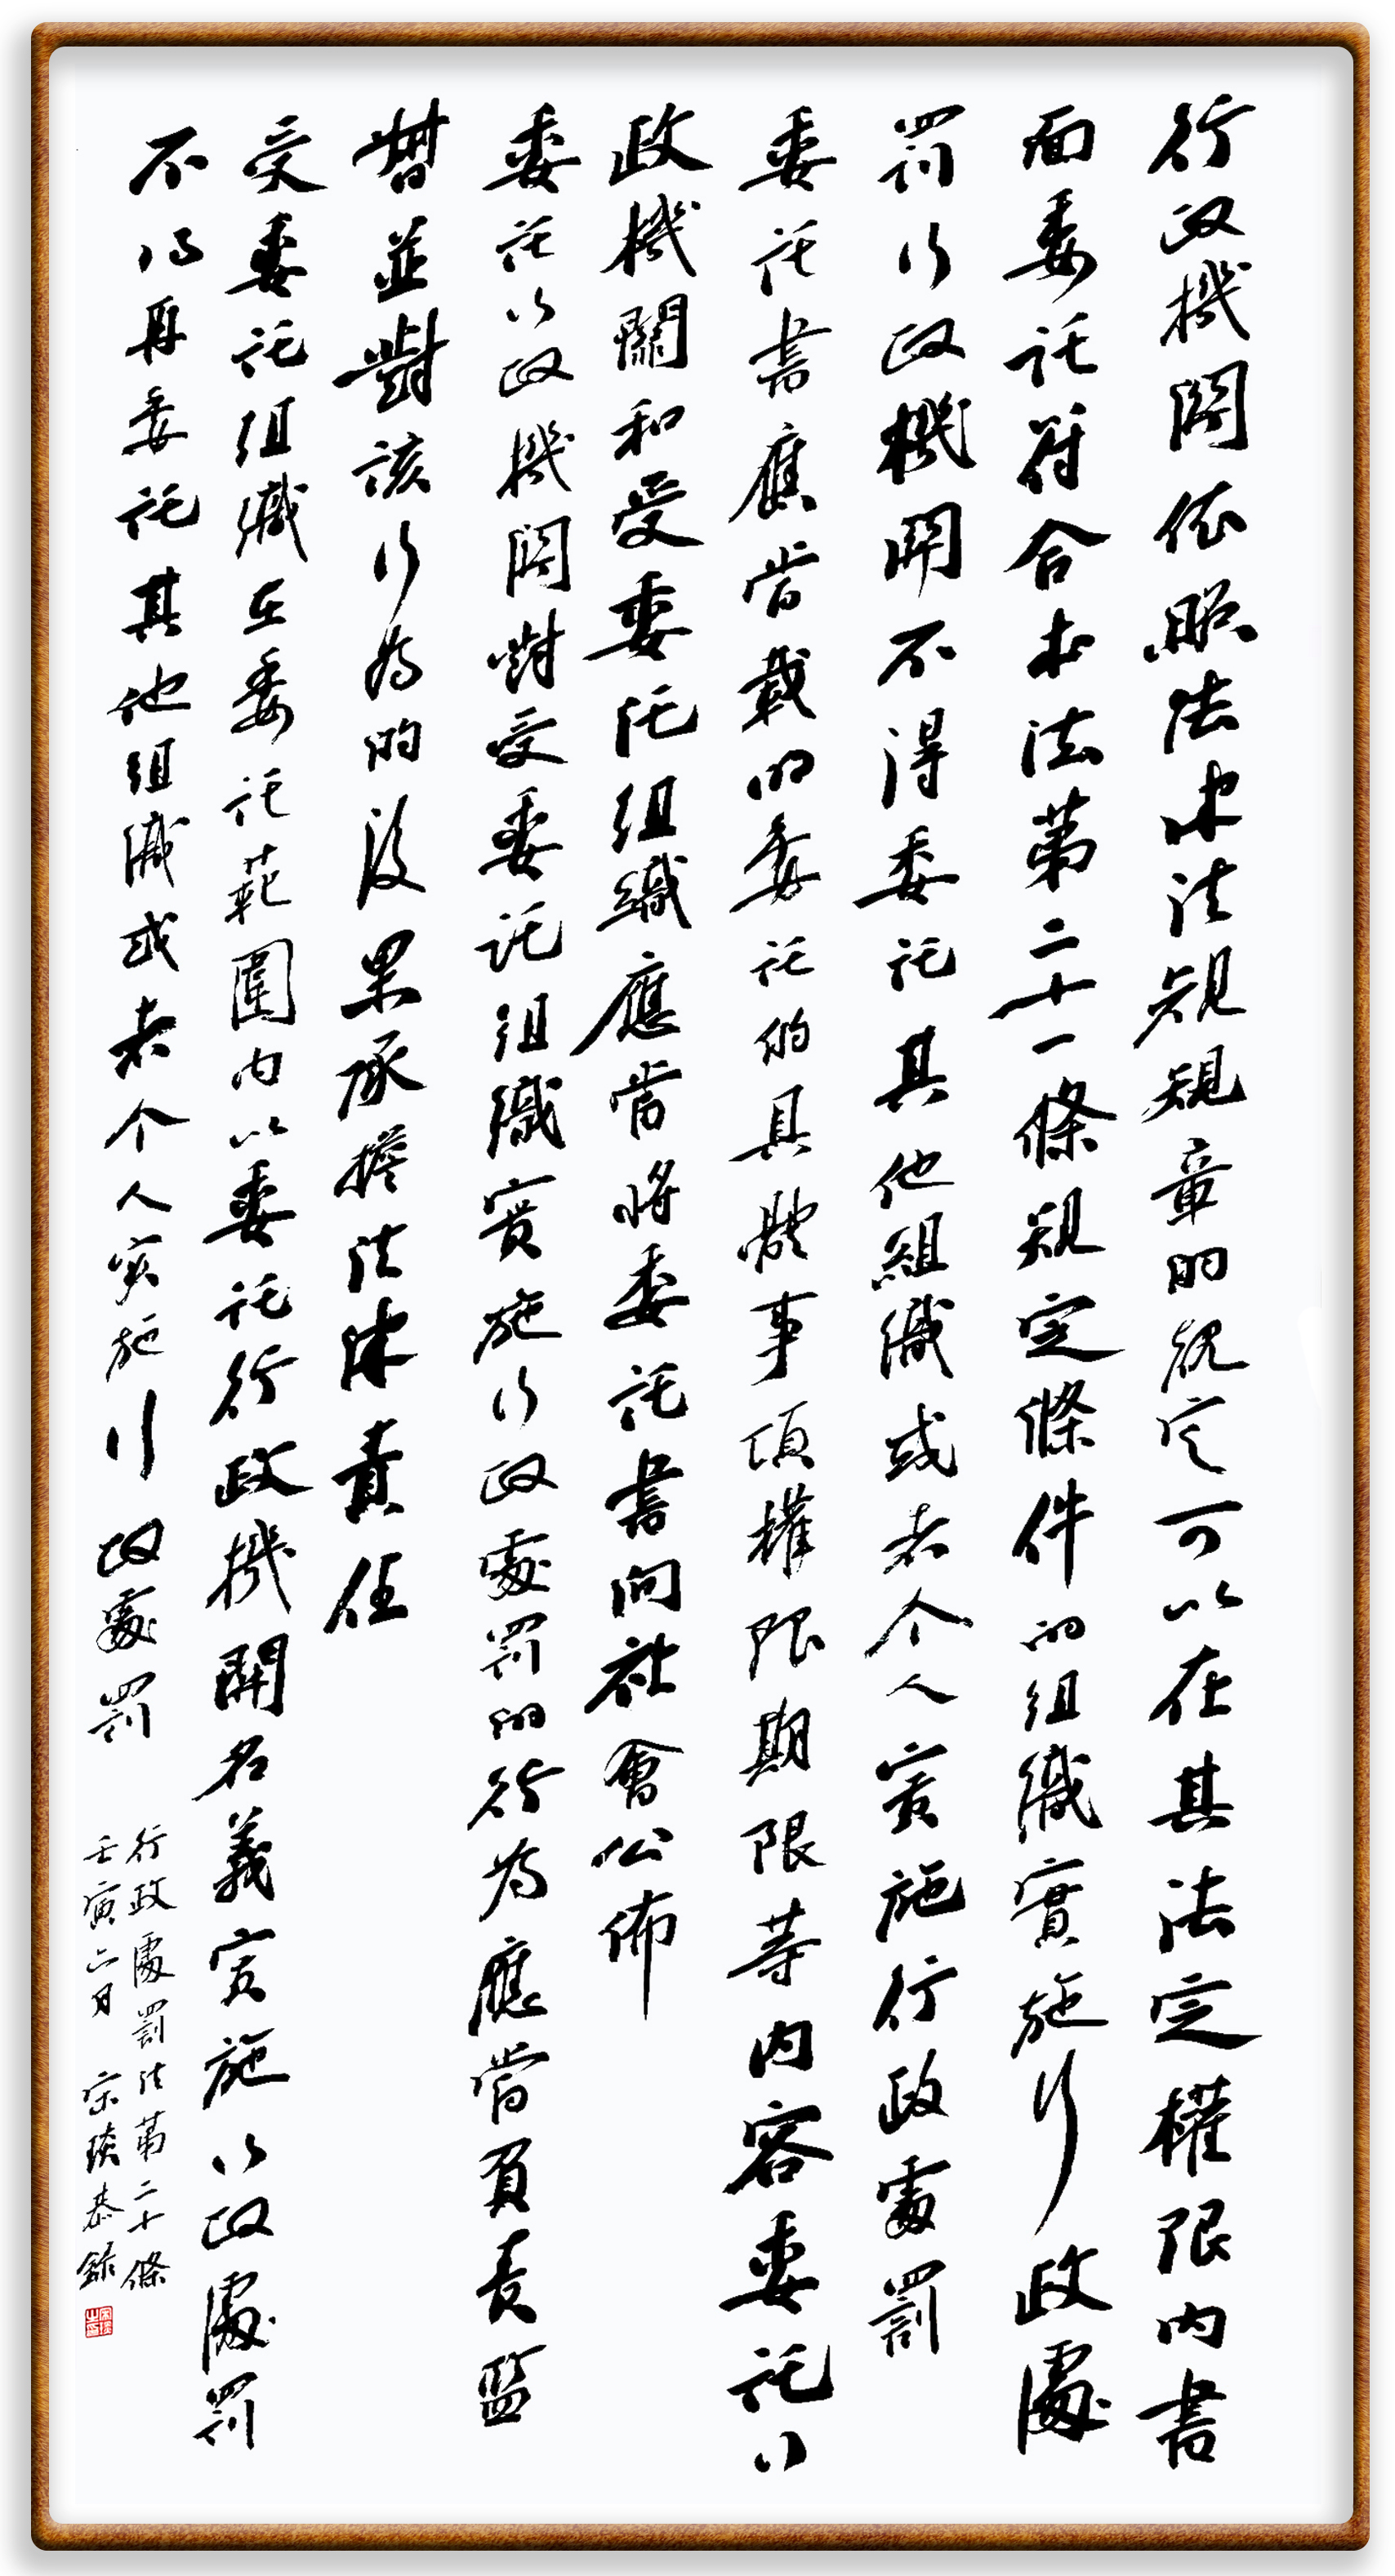 行政機関依照法律法規規章的規定可以在其法定權限内書
面委託符合本法第二十一條規定條件的組織實施行政處
罰行政機開不得委託其他組織或者个人實施行政處罰
委託書應當載明委託的具體事項權限期限等内容委託行
政機關和受委託組織應當將委託書向社會公佈
委託行政機関對受委託組織實施行政處罰的行為應當負責監
督並對該行為的後果承擔法律責任
受委託組織在委託範圍内以委託行政機開名義實施行政處罰
不得再委託其他組織或者个人実施行政處罰
行政處罰法第二十條
壬寅六月 宗琰恭録